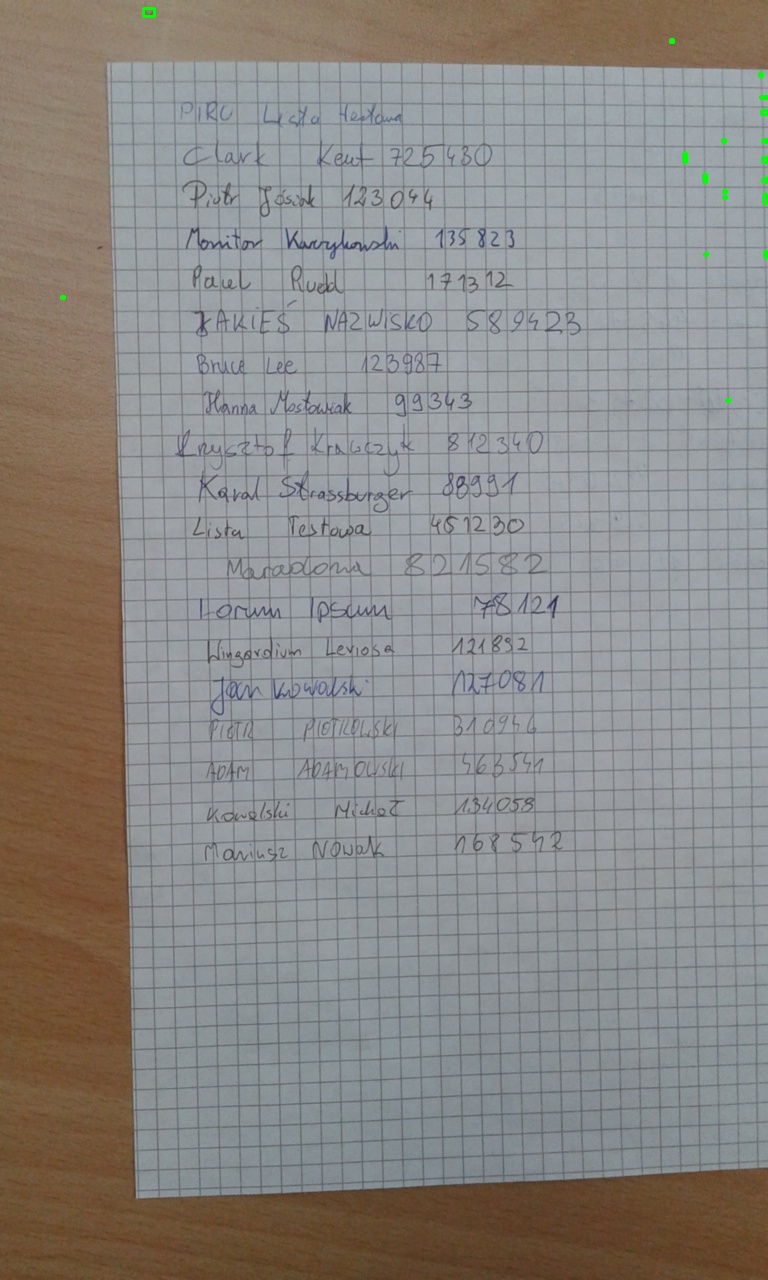 PIRO Lista testowa
Clark Kent 725430
Piotr Jósiak 123044
Monitor Kurzykowski 135823
Paweł Rudd 171312
JAKIEŚ NAZWISKO 589423
Bruce Lee 123987
Hanna Mostowiak 99343
Krzysztof Krawczyk 812340
Karol Strassburger 88991
Lista Testowa 451230
Maradona 821582
Lorum Ipsum 78121
Wingardium Leviosa 121892
Jan Kowalski 127081
PIOTR PIOTROWSKI 310946
ADAM ADAMOWSKI 463541
Kowalski Michał 134058
Mariusz Nowak 168542